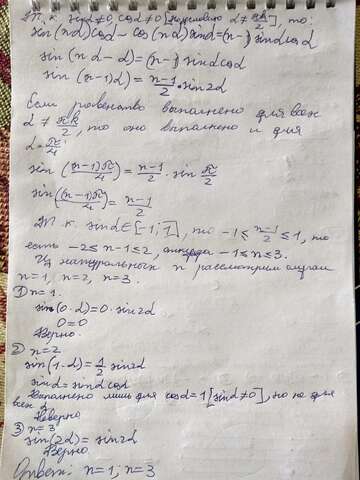 Т.к. sinα≠0, cosα≠0 [поскольку α≠πk/2], то:
sin(nα)cosα - cos(nα)sinα=(n-1)sinαcosα
sin(nα-α)=(n-1)sinαcosα
sin(n-1)α)=n-1/2·sin2α
Если равенство выполнено для всех
α≠πk/2, то оно выполнено и для
α=π/4:
sin((n-1)π/4)=n-1/2·sinπ/2
sin((n-1)π/4)=n-1/2
Т.к. sinα∈[-1;1], то -1≤n-1/2≤1, то
есть -2≤n-1≤2, откуда -1≤n≤3.
Из натуральных n рассмотрим случаи
n=1, n=2, n=3.
① n=1.
sin(0·α)=0·sin2α
0=0
Верно.
② n=2
sin(1·α)=1/2sin2α
sinα=sinαcosα
Выполнено лишь для cosα=1[sinα≠0], но не для
всех α
Неверно
③ n=3
sin(2α)=sin2α
Верно
Ответ: n=1; n=3